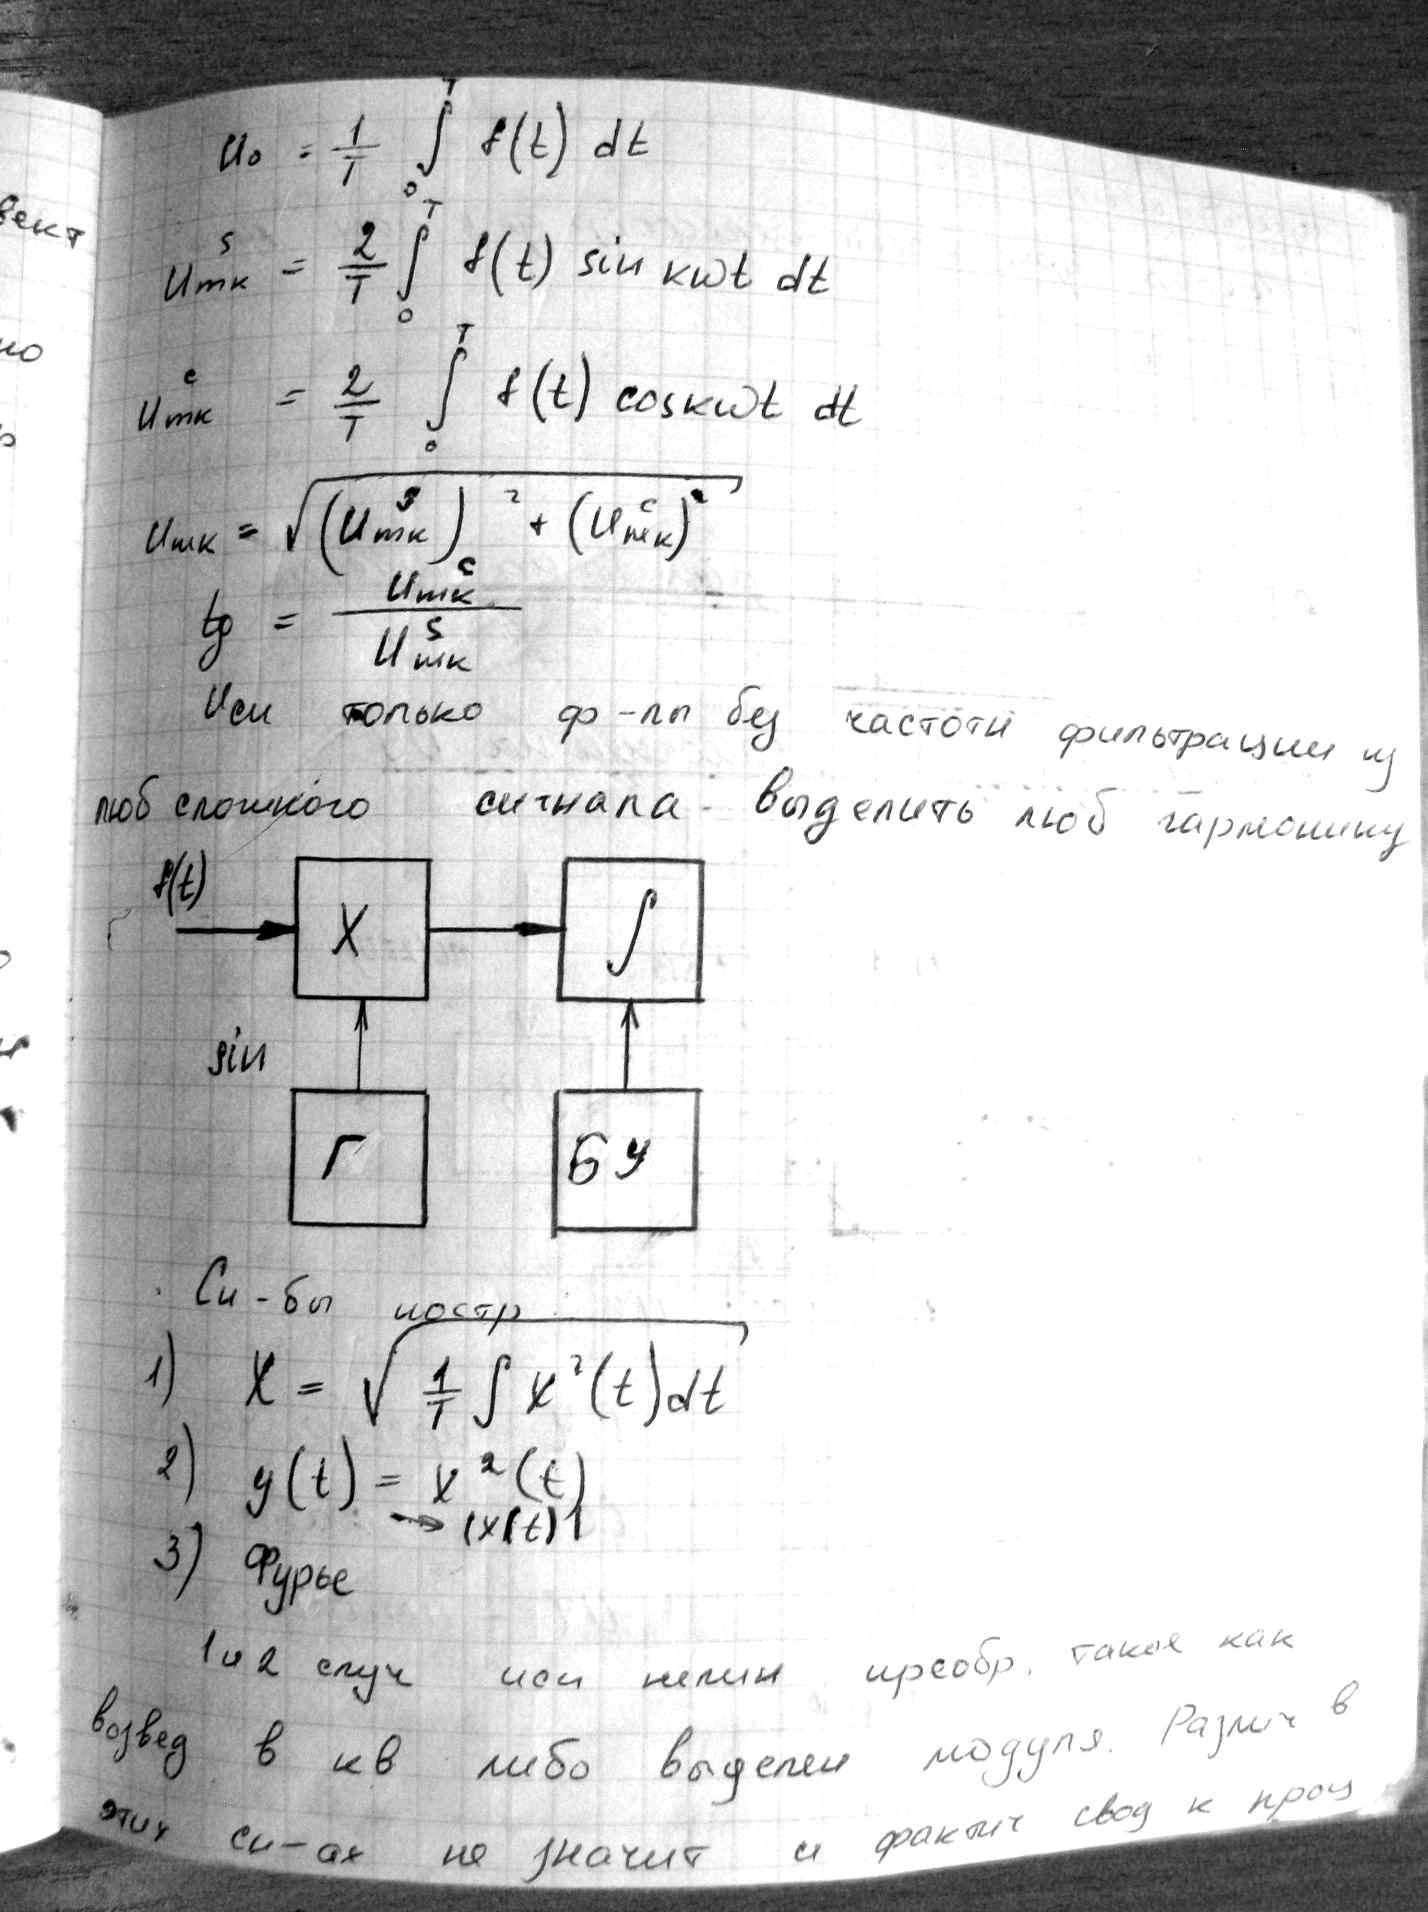 вект
но
U₀ = 1/T ∫₀ᵀ f(t) dt
Uˢmк = 2/T ∫₀ᵀ f(t) sin кωt dt
Uᶜmк = 2/T ∫₀ᵀ f(t) cosкωt dt
Umк = √((Uˢmк)² + (Uᶜmк)²)
tg = Uᶜmк / Uˢmк
Исп только ф-лы без частотн фильтрации из
люб сложного сигнала выделить люб гармонику
f(t)
X
∫
sin
Г
БУ
Сп-бы постр
1) X = √(1/T ∫ x²(t)dt)
2) y(t) = x²(t)
→ |x(t)|
3) Фурье
1 и 2 случ исп нелин преобр. такое как
возвед в кв либо выделен модуля. Различ в
этих сп-ах не значит и фактич свод к проц